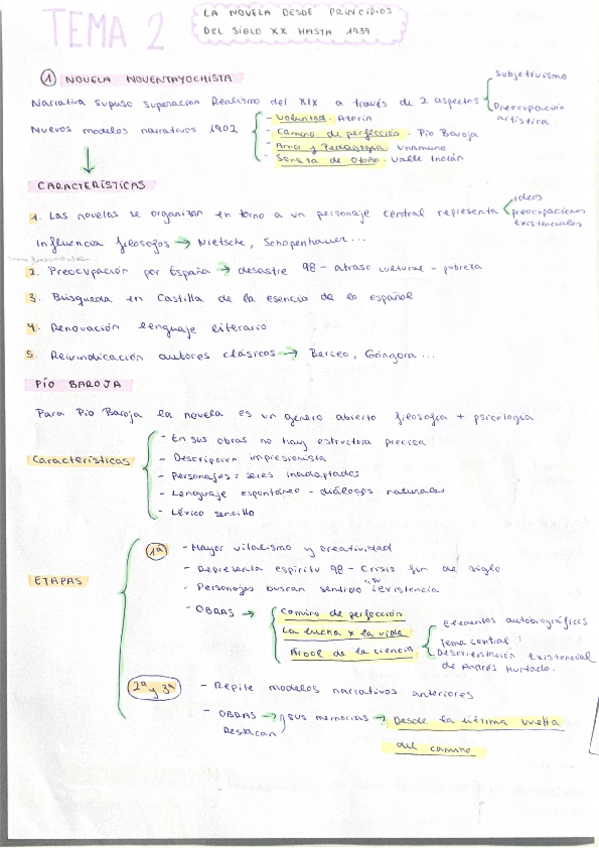 TEMA 2
LA NOVELA DESDE PRINCIPIOS
DEL SIGLO XX HASTA 1939
① NOVELA NOVENTAYOCHISTA
Narrativa supuso superación Realismo del XIX a través de 2 aspectos
Subjetivismo
Preocupación artística
Nuevos modelos narrativos 1902
- Voluntad. Azorín
- Camino de perfección. Pío Baroja
- Amor y Pedagogía Unamuno
- Sonata de Otoño. Valle Inclán
CARACTERÍSTICAS
1. Las novelas se organizan en torno a un personaje central representa
ideas
preocupaciones existenciales
Influencia filosofos → Nietsche, Schopenhauer...
2. Preocupación por España → desastre 98 - atraso cultural - pobreza
3. Búsqueda en Castilla de la esencia de lo español
4. Renovación lenguaje literario
5. Reivindicación autores clásicos → Berceo, Góngora...
PÍO BAROJA
Para Pío Baroja la novela es un genero abierto filosofía + psicología
Características
- En sus obras no hay estructura precisa
- Descripcion impresionista
- Personajes: seres inadaptados
- Lenguaje espontáneo - diálogos naturales
- Léxico sencillo
ETAPAS
1ª
- Mayor vitalismo y creatividad
- Representa espíritu 98 - Crisis fin de siglo
- Personajes buscan sentido a su existencia
- OBRAS →
Camino de perfección
La lucha x la vida
Árbol de la ciencia
Elementos autobiográficos
Tema central:
Desorientación existencial
de Andrés Hurtado.
2ª y 3ª
- Repite modelos narrativos anteriores
- OBRAS → sus memorias → Desde la última vuelta
Destacan
del camino